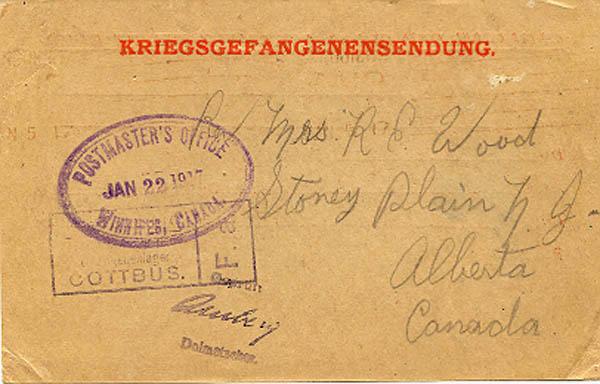 KRIEGSGEFANGENENSENDUNG.
Mrs. R E Wood
Stoney Plain N J
Alberta
Canada
POSTMASTER'S OFFICE
JAN 22 1917
WINNIPEG, CANADA
COTTBUS.
P.F. 8
Geprüft
Dolmetscher.